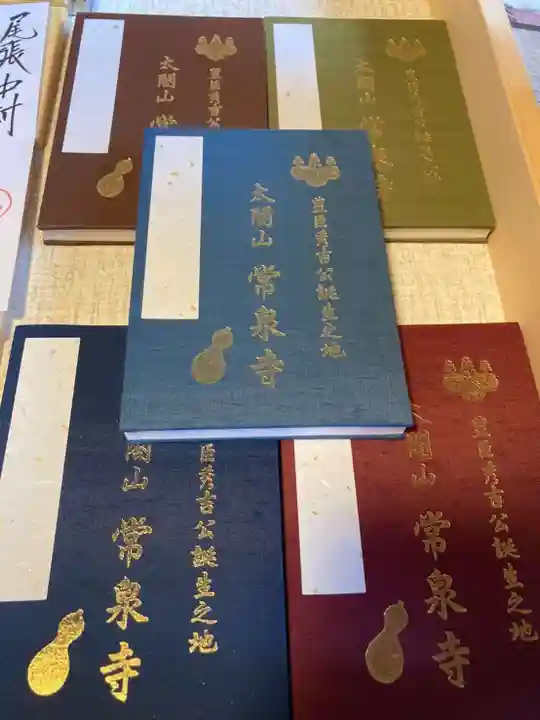 尾張中村
豊臣秀吉公誕生之地
太閤山 常
豊臣秀吉公誕生之地
太閤山 常泉寺
豊臣秀吉公誕生之地
太閤山 常泉寺
臣秀吉公誕生之地
閤山 常泉寺
豊臣秀吉公誕生之地
太閤山 常泉寺